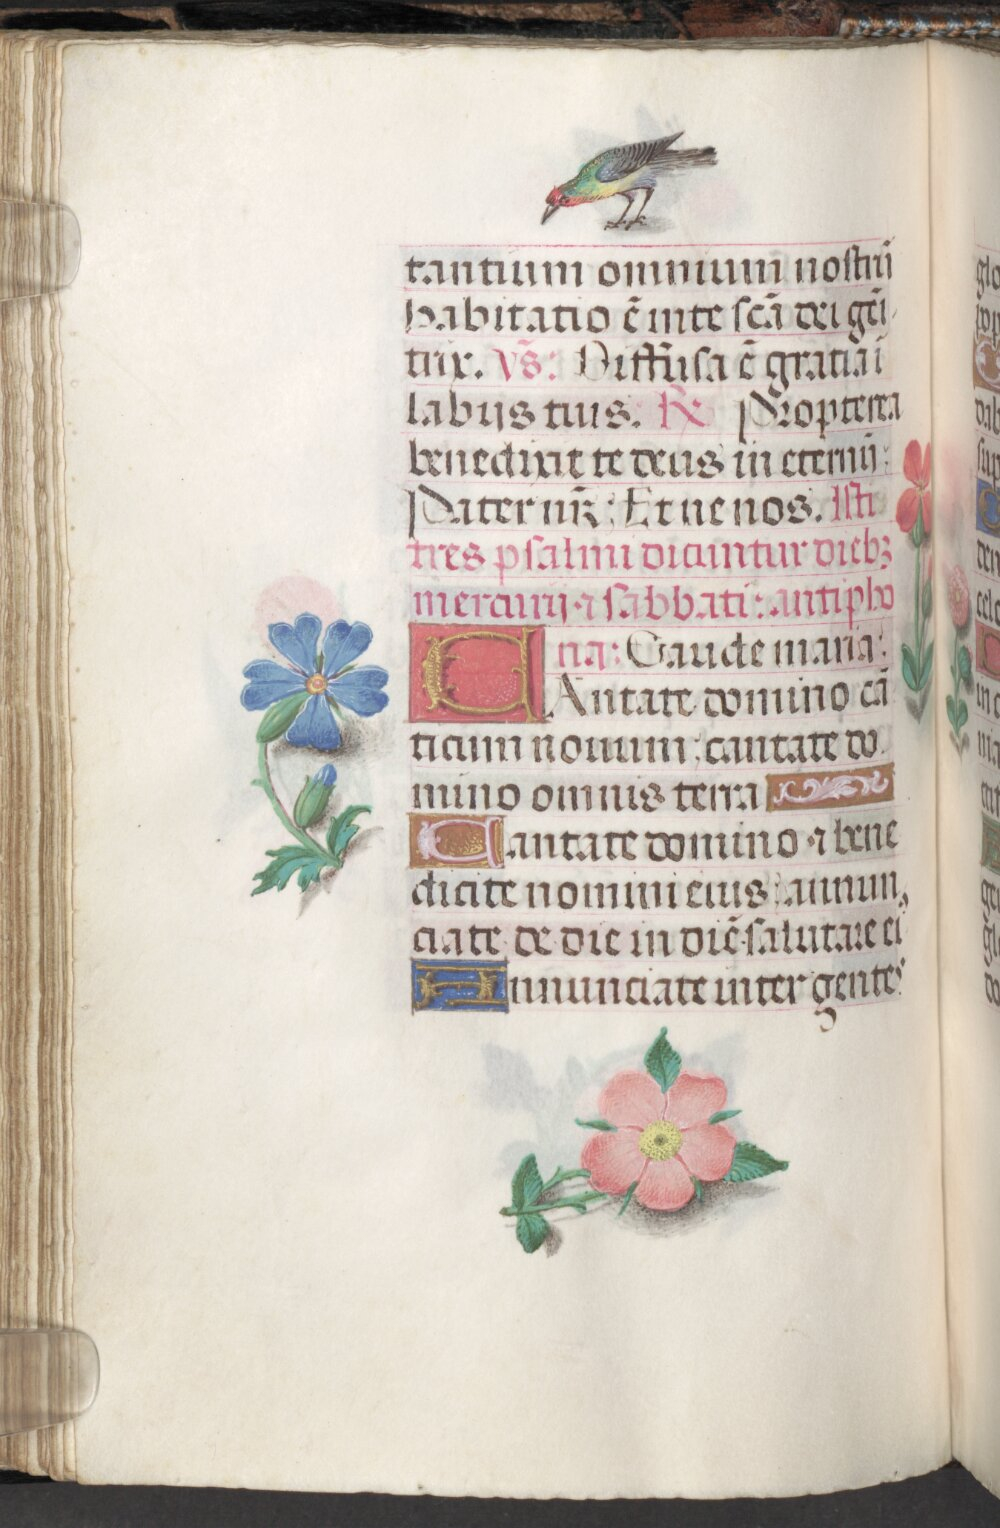 tantium omnium nostrũ
habitatio ẽ in te scã dei gẽi
trix. vs̃: Diffusa ẽ gratia ĩ
labijs tuis. R̃ Propterea
benedixit te deus in eternũ:
Pater nr̃: Et ne nos. Isti
tres psalmi dicuntur diebꝫ
mercurij ⁊ sabbati: antipho
na: Gaude maria:
CAntate domino cã
ticum nouum: cantate do
mino omnis terra
Cantate domino ⁊ bene
dicite nomini eius: annun
ciate de die in diẽ salutare ei
Annunciate inter gentes
glo
dab
sup
den
cele
in c